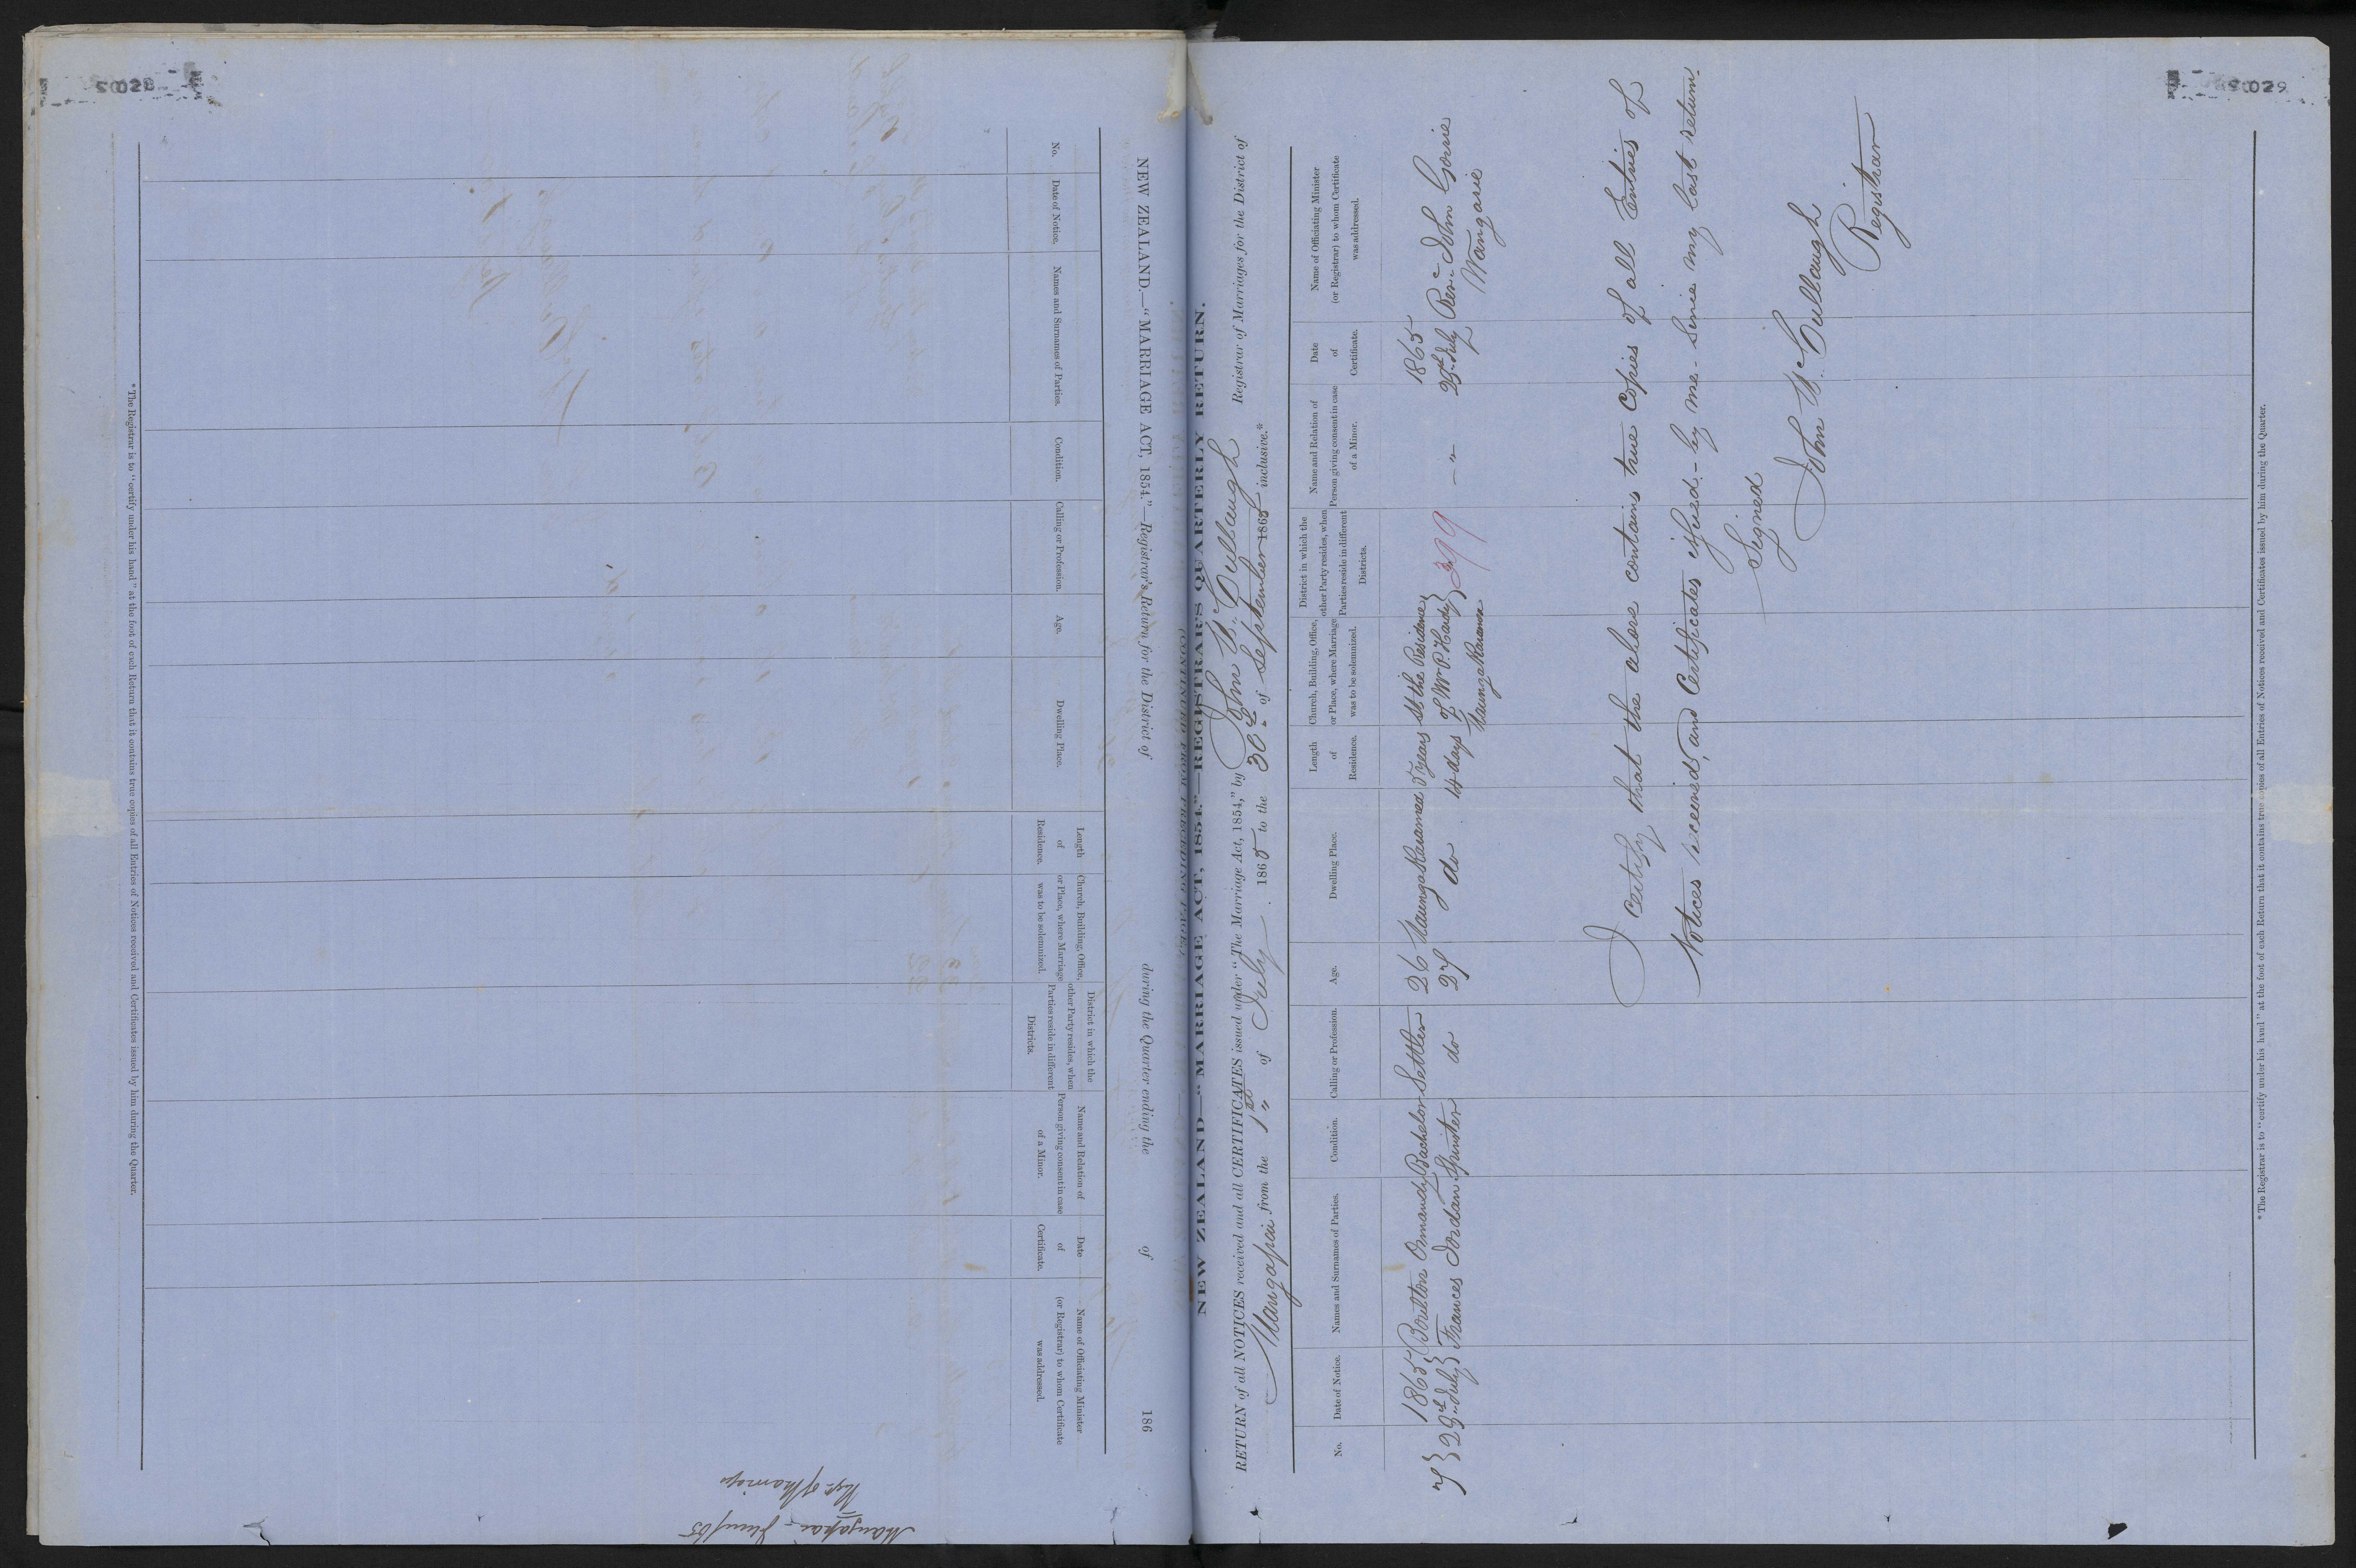 NEW ZEALAND.—"MARRIAGE ACT, 1854."—Registrar's Return for the District of during the Quarter ending the of 186
No.
Date of Notice.
Names and Surnames of Parties.
Condition.
Calling or Profession.
Age.
Dwelling Place.
Length of Residence.
Church, Building, Office, or Place, where Marriage was to be solemnized.
District in which the other Party resides, when Parties reside in different Districts.
Name and Relation of Person giving consent in case of a Minor.
Date of Certificate.
Name of Officiating Minister (or Registrar) to whom Certificate was addressed.
* The Registrar is to "certify under his hand" at the foot of each Return that it contains true copies of all Entries of Notices received and Certificates issued by him during the Quarter.
Mangapai
of Marriage
NEW ZEALAND—"MARRIAGE ACT, 1854."—REGISTRAR'S QUARTERLY RETURN.
RETURN of all NOTICES received and all CERTIFICATES issued under "The Marriage Act, 1854," by John McCullaugh Registrar of Marriages for the District of
Mangapai from the 1st of July 1865 to the 30th of September 1865 inclusive.*
No.
Date of Notice.
Names and Surnames of Parties.
Condition.
Calling or Profession.
Age.
Dwelling Place.
Length of Residence.
Church, Building, Office, or Place, where Marriage was to be solemnized.
District in which the other Party resides, when Parties reside in different Districts.
Name and Relation of Person giving consent in case of a Minor.
Date of Certificate.
Name of Officiating Minister (or Registrar) to whom Certificate was addressed.
1865 Boulton Ormandy Bachelor Settler 26 Maungakaramea 5 years At the Residence 1865
7 29th July Frances Jordan Spinster do 27 do 14 days of Wm P. Hardy 399 — " — 29th July Revd John Gorrie
Maungakaramea Wangarie
I certify that the above contains true copies of all Entries of
Notices received, and Certificates issued by me since my last return.
Signed
John McCullaugh
Registrar
* The Registrar is to "certify under his hand" at the foot of each Return that it contains true copies of all Entries of Notices received and Certificates issued by him during the Quarter.